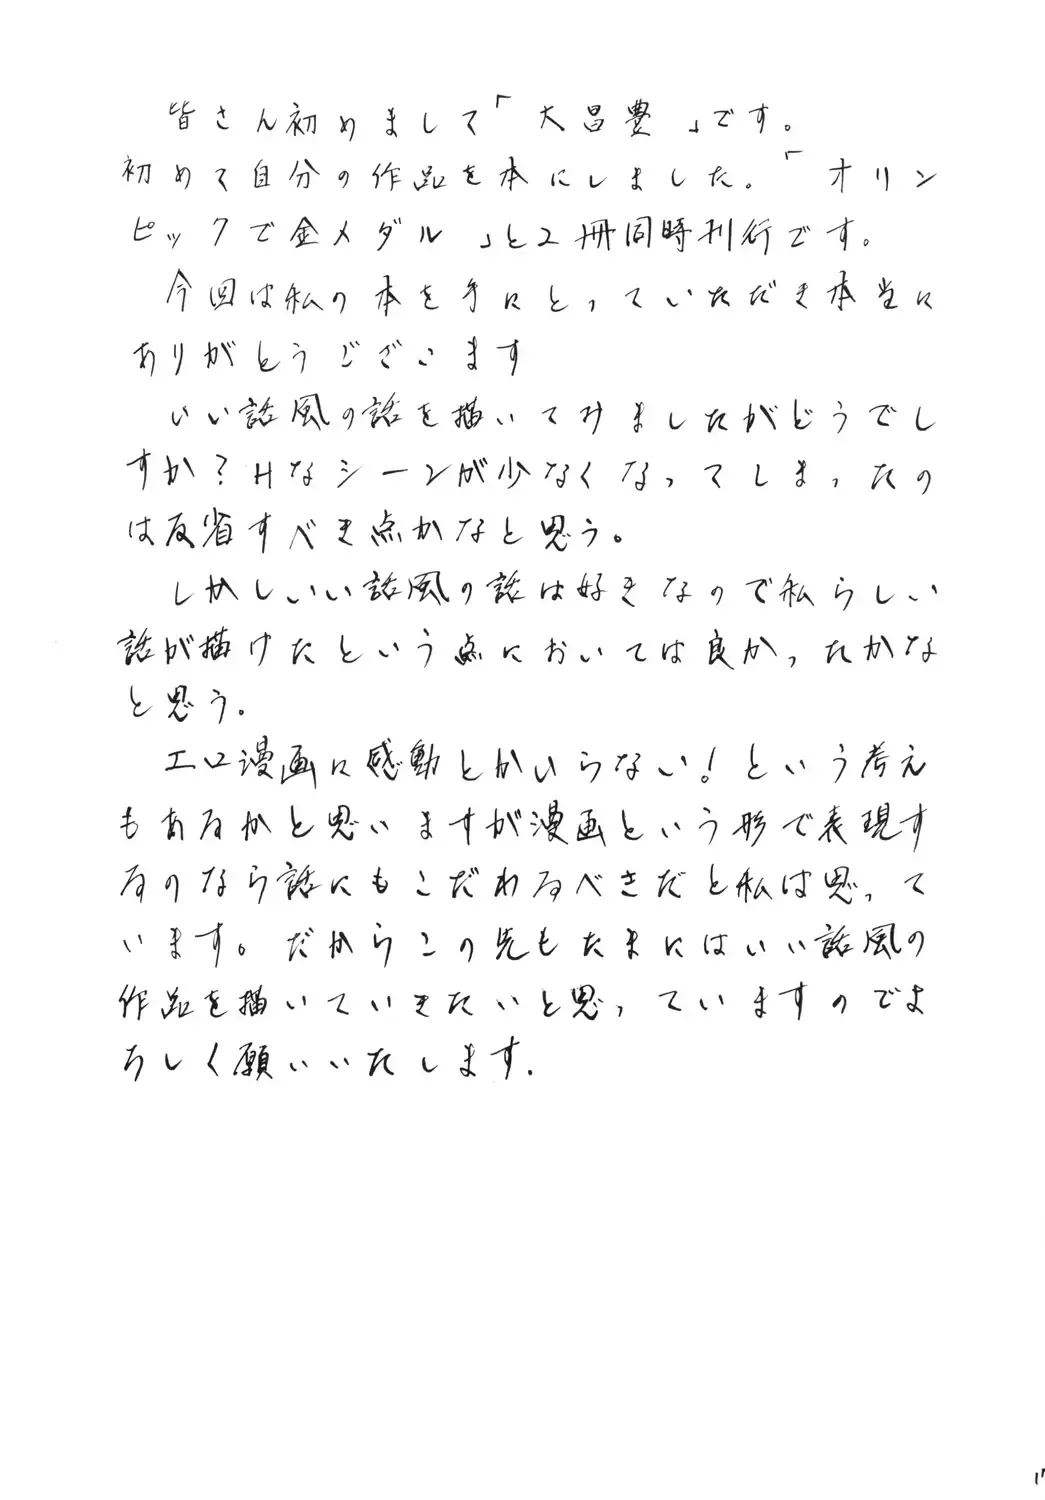 皆さん初めまして「大昌豊」です。
初めて自分の作品を本にしました。「オリン
ピックで金メダル」と2冊同時刊行です。
今回は私の本を手にとっていただき本当に
ありがとうございます
いい話風の話を描いてみましたがどうでし
すか?Hなシーンが少なくなってしまったの
は反省すべき点かなと思う。
しかしいい話風の話は好きなので私らしい
話が描けたという点においては良かったかな
と思う。
エロ漫画に感動とかいらない!という考え
もあるかと思いますが漫画という形で表現す
るのなら話にもこだわるべきだと私は思って
います。だからこの先もたまにはいい話風の
作品を描いていきたいと思っていますのでよ
ろしく願いいたします.
17